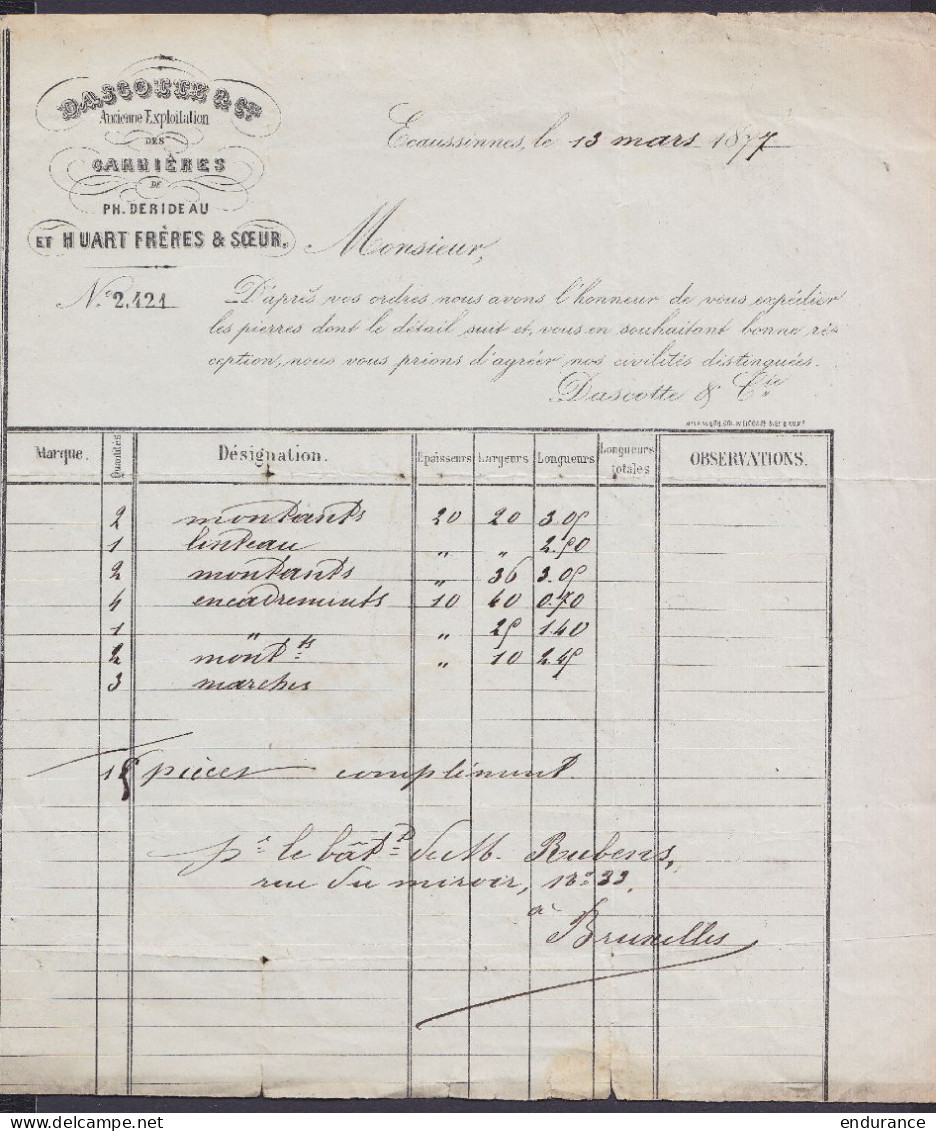 DASCOTTE & Cie
Ancienne Exploitation
DES
CARRIÈRES
DE
PH. DERIDEAU
ET HUART FRÈRES & SŒUR.
Ecaussinnes, le 13 mars 1877
Monsieur,
No 2,121
D'après vos ordres nous avons l'honneur de vous expédier
les pierres dont le détail suit et, vous en souhaitant bonne ré-
ception, nous vous prions d'agréer nos civilités distinguées.
Dascotte & Cie
Marque. Quantités Désignation. Epaisseurs Largeurs Longueurs Longueurs totales OBSERVATIONS.
2 montants 20 20 3.05
1 linteau " " 2.50
2 montants " 36 3.05
4 encadrements 10 40 0.70
1 " " 25 1.40
2 montts " 10 2.45
3 marches
15 pièces complément
pr le bâtt de M. Rubens,
rue du miroir, no 33,
à
Bruxelles
endurance